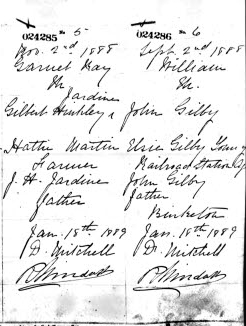 024285 No 5
Nov. 2nd 1888
Garnet Ray
M.
Jardine
Gilbert
Hattie Martin
Farmer
J. H. Jardine
father
Jan. 18th 1889
D. Mitchell
024286 No 6
Sept. 2nd 1888
William
M.
John Gilby
Elsie Gilby
Railroad Station
John Gilby
father
Jan. 18th 1889
D. Mitchell